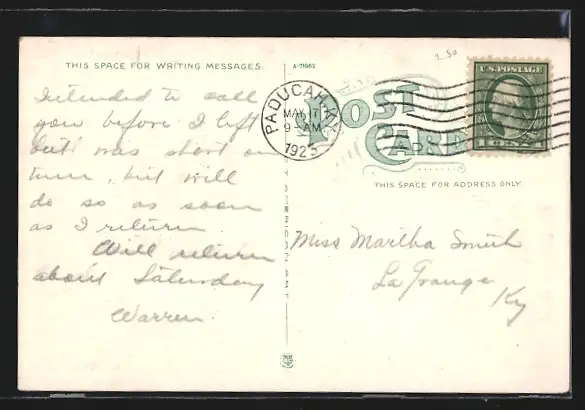 THIS SPACE FOR WRITING MESSAGES.
A-71962
2.50
U.S. POSTAGE
1 CENT 1
PADUCAH, KY.
MAY 17
9-AM
1923
POST
CARD
THIS SPACE FOR ADDRESS ONLY.
Intended to call
you before I left
but was short on
time, but will
do so as soon
as I return
Will return
about Saturday
Warren.
Miss Martha Smith
La Grange
Ky